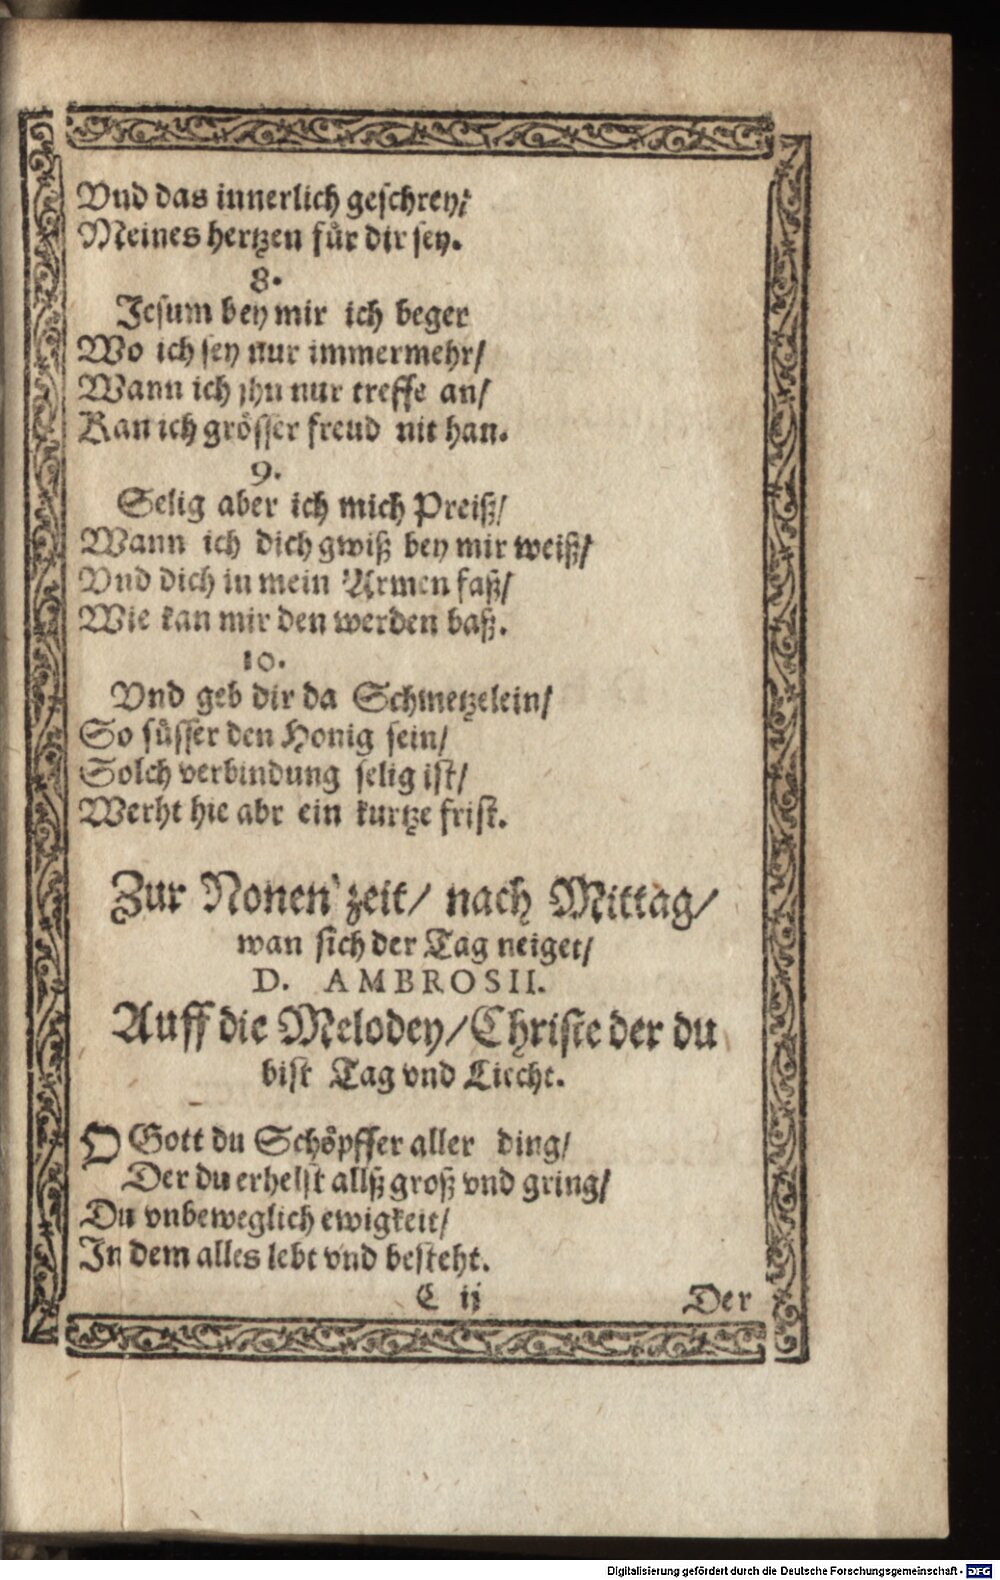 Vnd das innerlich geschrey;
Meines hertzen für dir sey.
8.
Jesum bey mir ich beger
Wo ich sey nur immermehr/
Wann ich jhn nur treffe an/
Kan ich grösser freud nit han.
9.
Selig aber ich mich Preiß/
Wann ich dich gwiß bey mir weiß/
Vnd dich in mein Armen faß/
Wie kan mir den werden baß.
10.
Vnd geb dir da Schmetzelein/
So süsser den Honig sein/
Solch verbindung selig ist/
Werht hie abr ein kurtze frist.
Zur Nonen zeit/ nach Mittag/
wan sich der Tag neiget/
D. AMBROSII.
Auff die Melodey/Christe der du
bist Tag vnd Liecht.
O Gott du Schöpffer aller ding/
Der du erhelst allß groß vnd gring/
Du vnbeweglich ewigkeit/
In dem alles lebt vnd besteht.
C ij Der
Digitalisierung gefördert durch die Deutsche Forschungsgemeinschaft - DFG